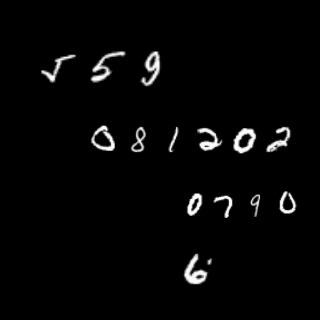 559
081202
0790
6